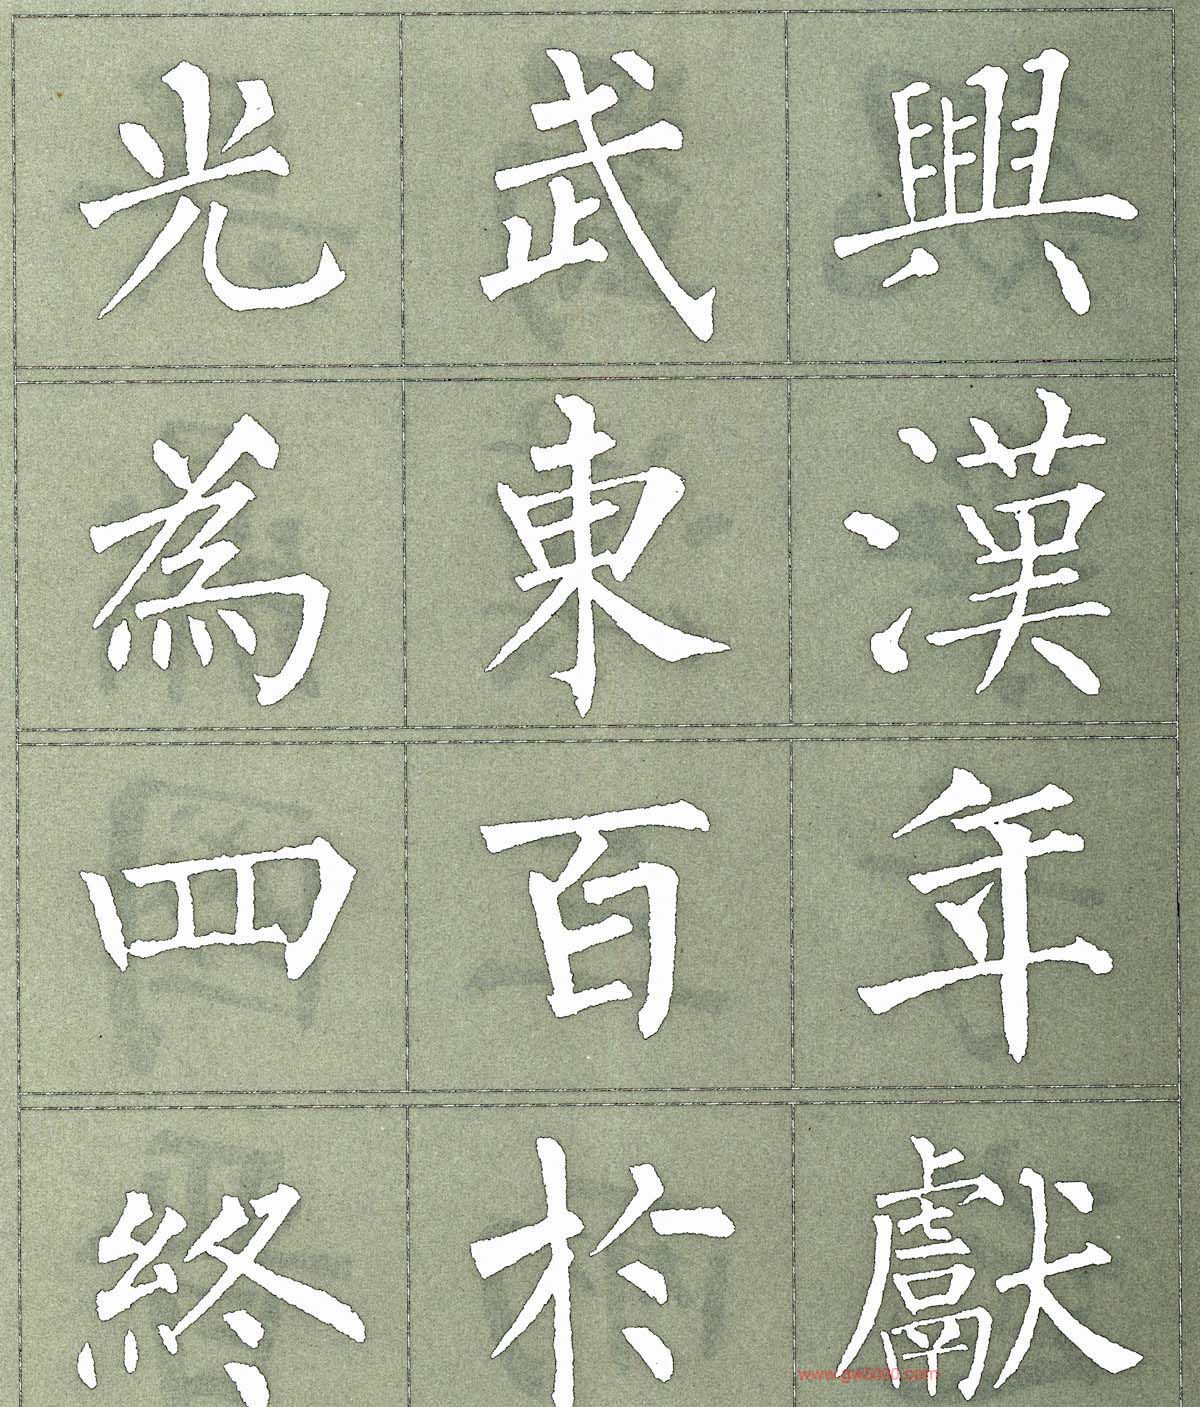 光武興
為東漢
四百年
終於獻
www.gw5000.com